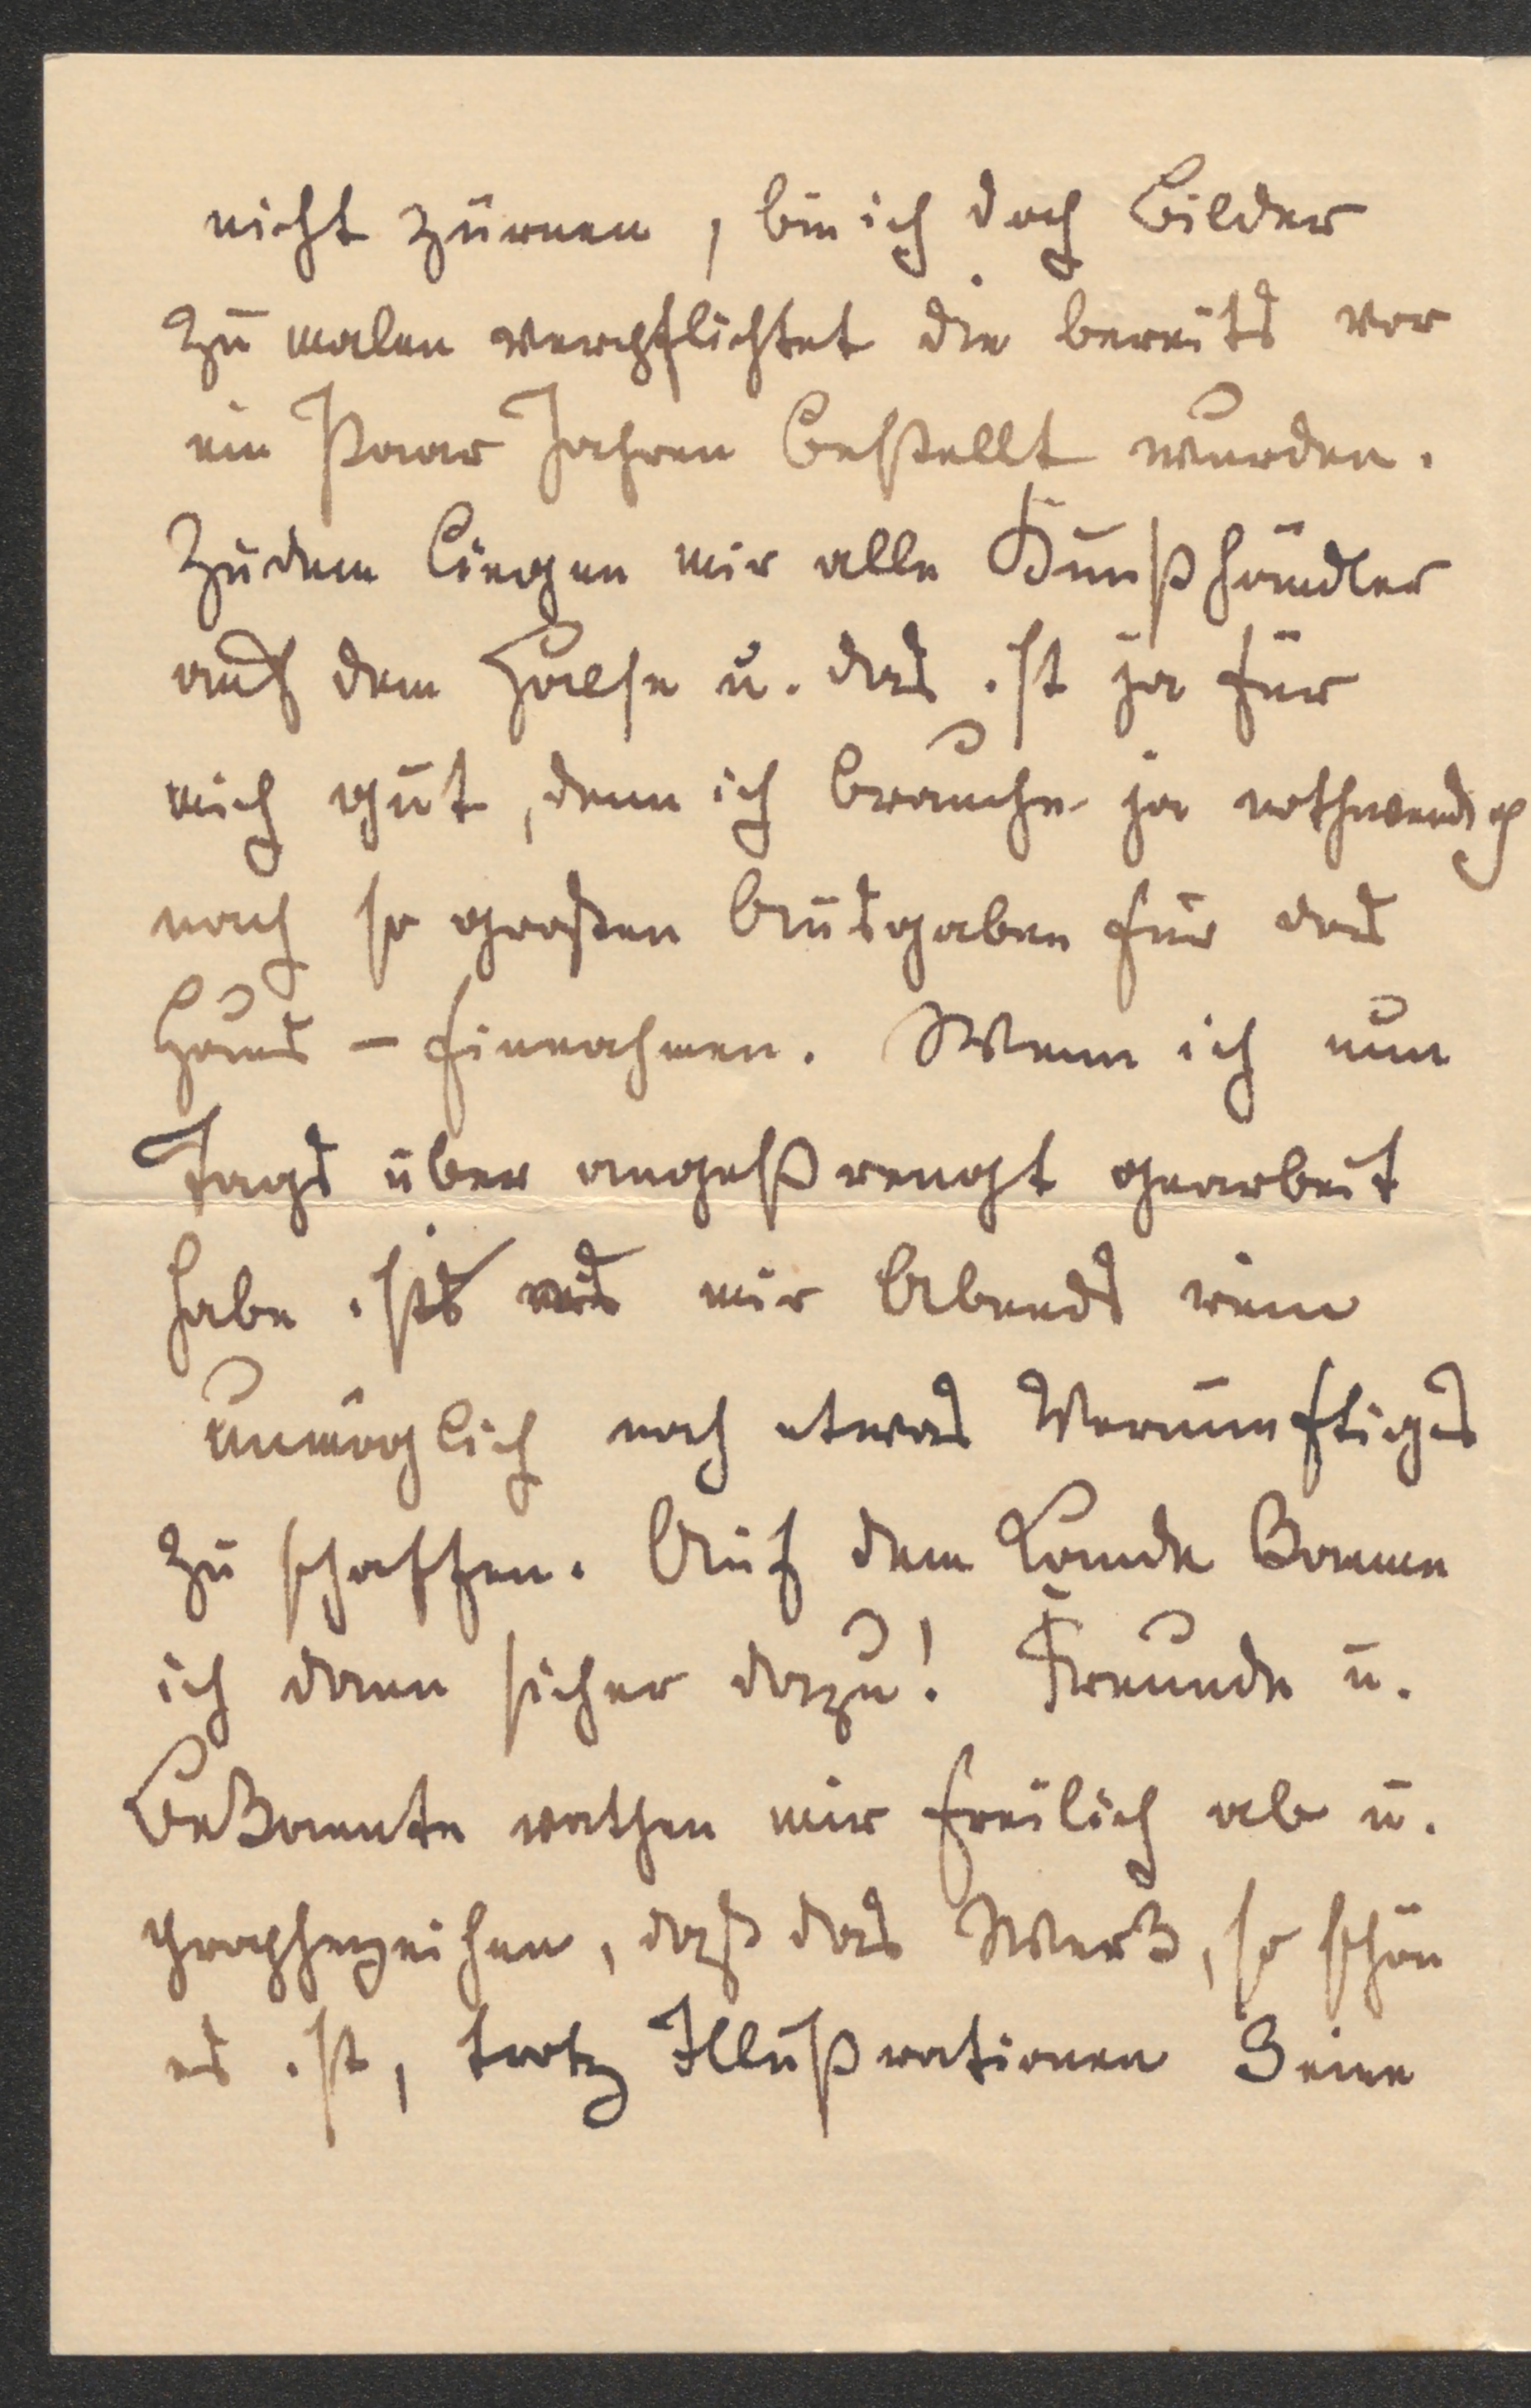 nicht zürnen, bin ich doch Bilder
zu malen verpflichtet die bereits vor
ein Paar Jahren bestellt wurden.
Zudem liegen mir alle Kunsthändler
auf dem Halse u. das ist ja für
mich gut, denn ich brauche ja nothwendig
nach so großen Ausgaben für das
Haus - Einnahmen. Wenn ich nun
Tags über angestrengt gearbeit
habe ists mir Abends rein
unmöglich noch etwas Vernünftiges
zu schaffen. Auf dem Lande komme
ich dann sicher dazu! Freunde u.
Bekannte rathen mir freilich ab u.
prophezeihen, daß das Werk, so schön
es ist, trotz Illustrationen keine